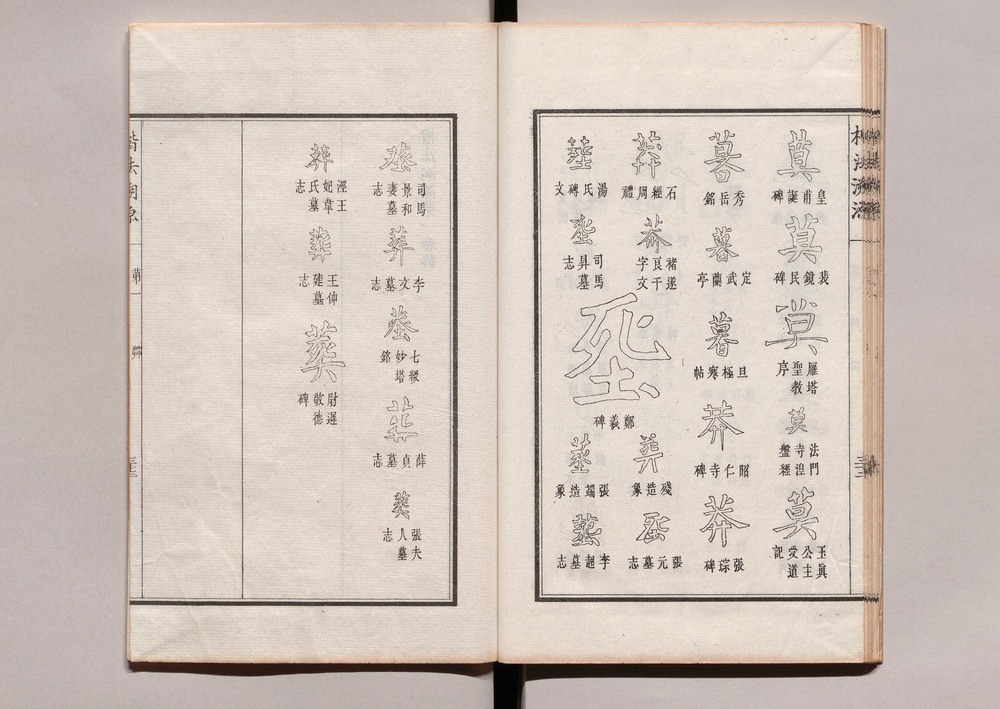 莫
皇甫誕碑
莫
裴鏡民碑
莫
雁塔聖教序
莫
法門寺湼盤經
莫
玉眞公主受道記
暮
秀岳銘
暮
定武蘭亭
暮
旦極寒帖
莽
昭仁寺碑
莽
張琮碑
莽
石經周禮
莽
褚遂良千字文
塟
湯氏磚文
司馬昇墓志
鄭羲碑
葬
殘造象
張元墓志
塟
張端造象
塟
李超墓志
司馬景和妻墓志
葬
李文墓志
塟
七級妙塔銘
葬
薛貞墓志
葬
張夫人墓志
葬
涇王妃韋氏墓志
葬
王仲建墓志
葬
尉遲敬德碑
楷法溯源
第一
艸